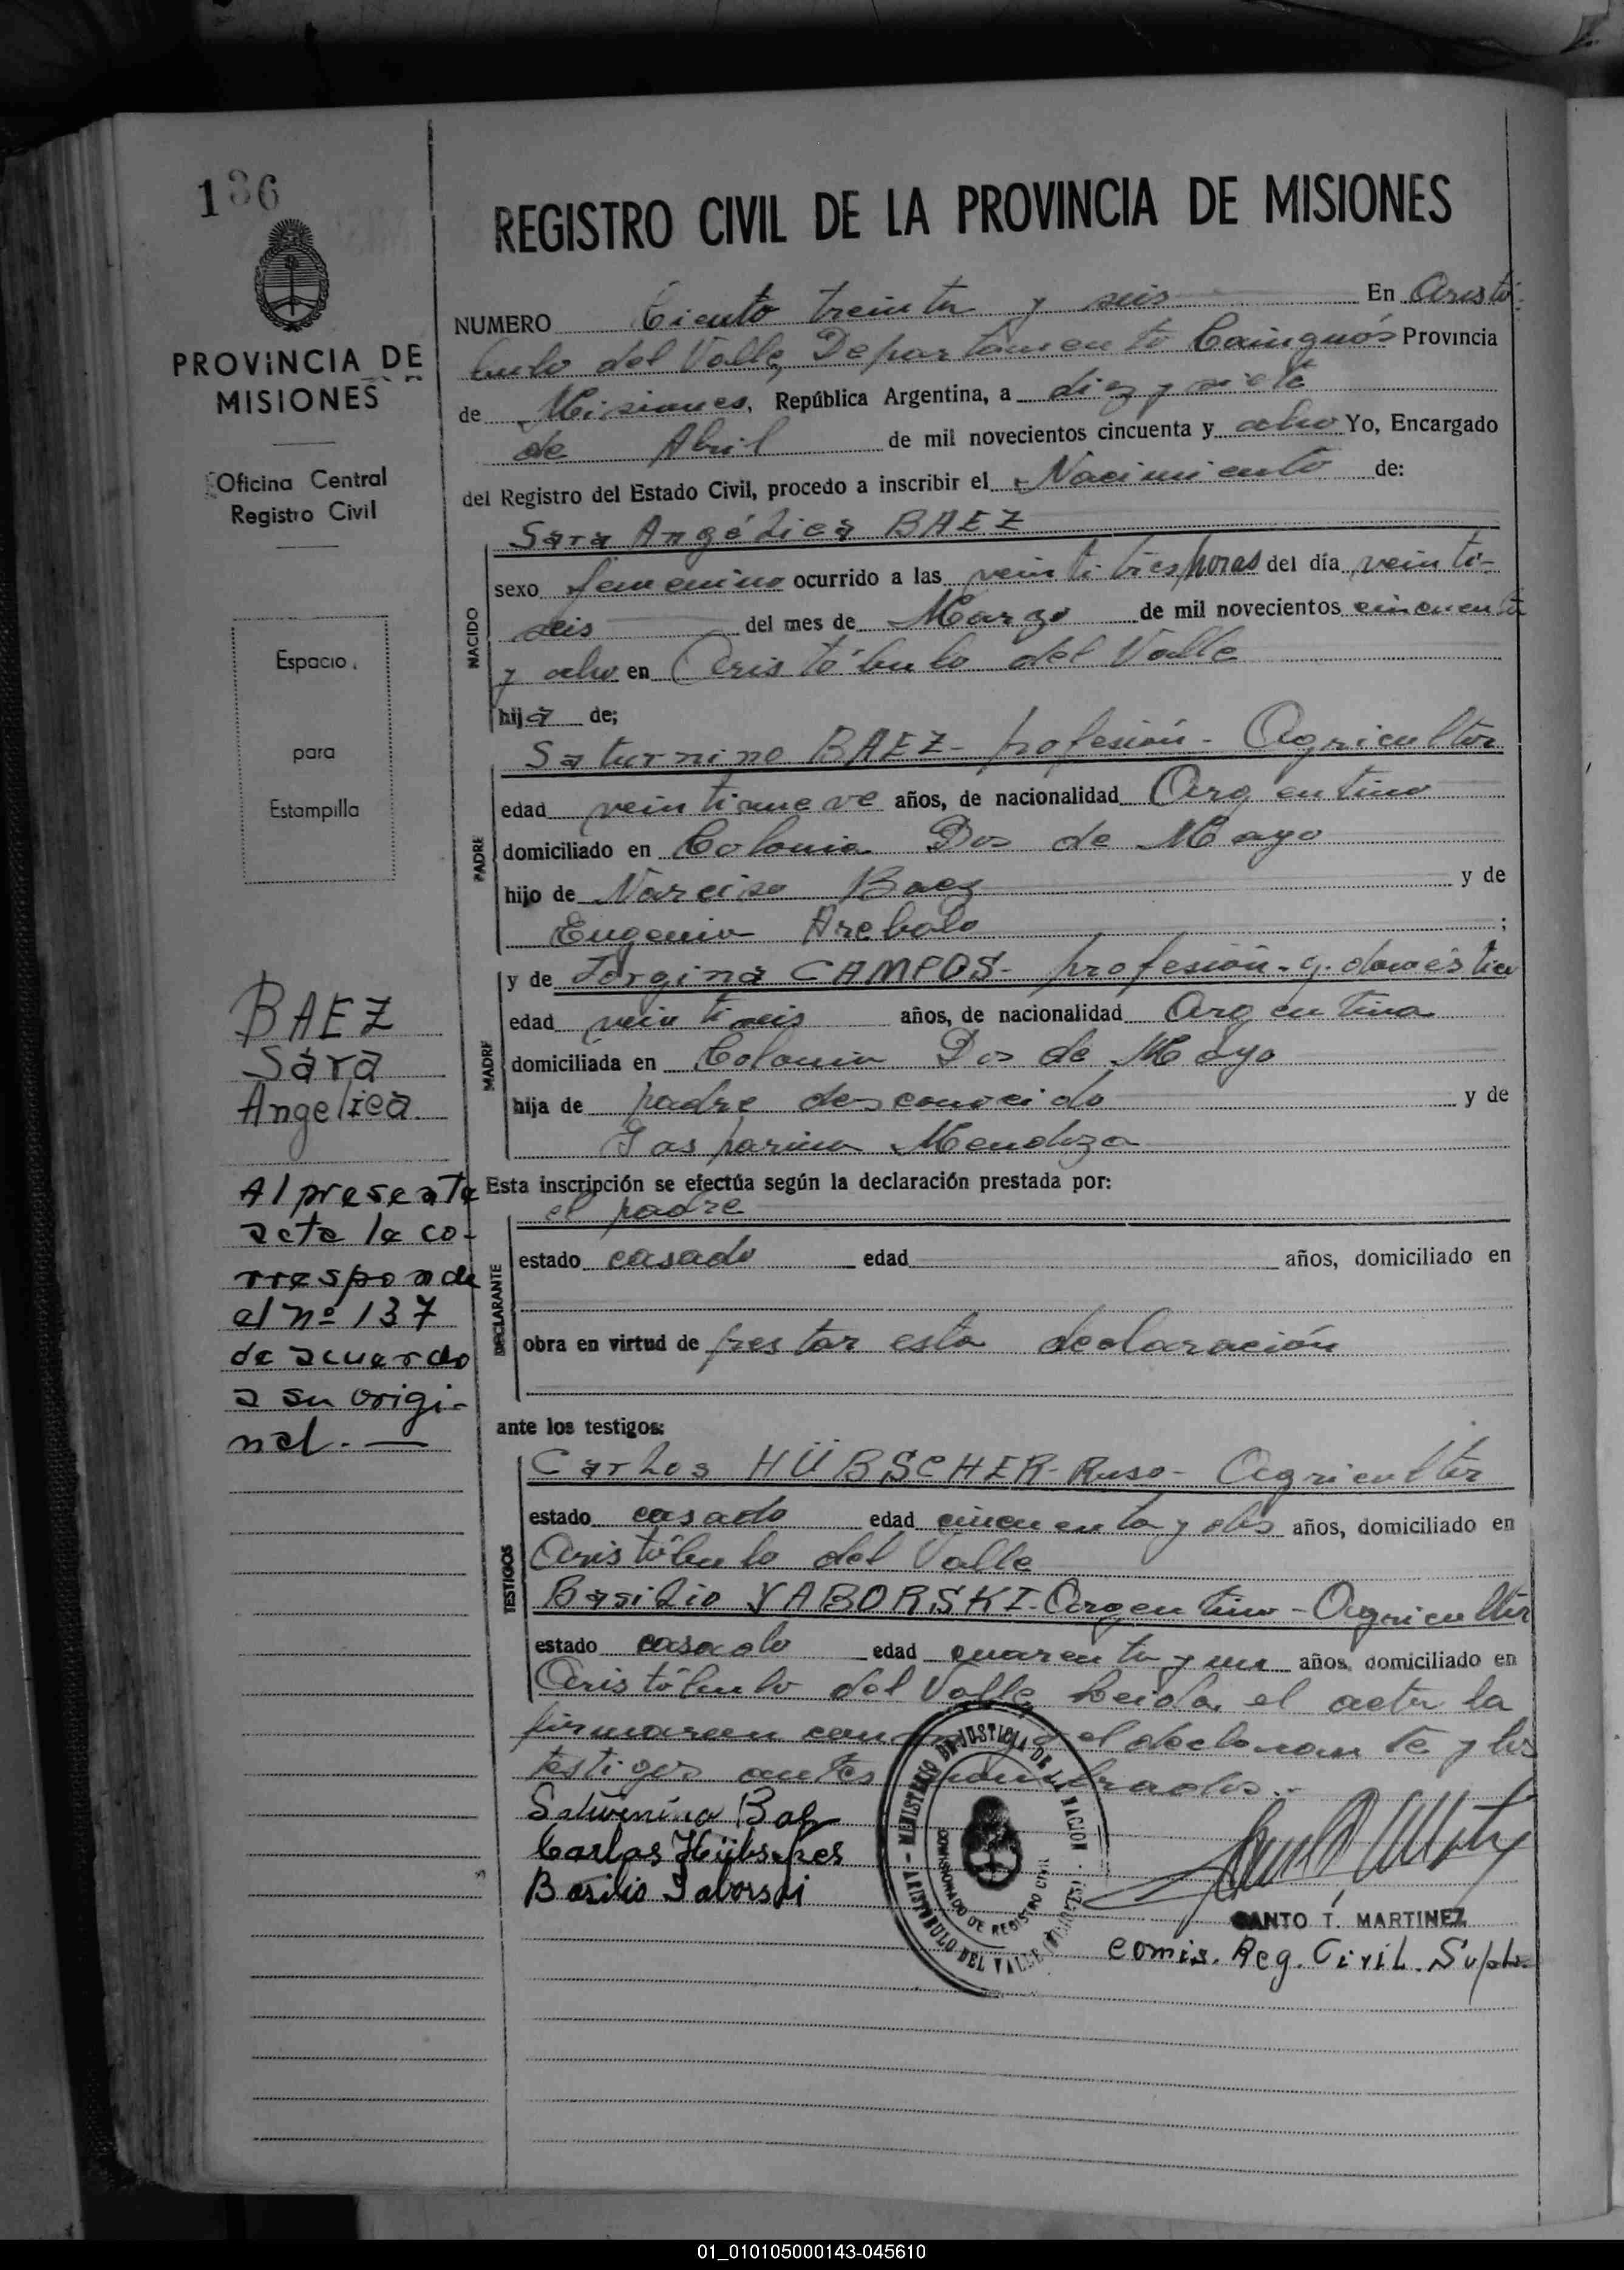 136
PROVINCIA DE
MISIONES
Oficina Central
Registro Civil
Espacio
para
Estampilla
BAEZ
Sara
Angelica
Al presente
acta la co-
rresponde
el nº 137
de acuerdo
a su origi-
nal. —
REGISTRO CIVIL DE LA PROVINCIA DE MISIONES
NUMERO Ciento treinta y seis En Aristó-
bulo del Valle, Departamento Cainguás Provincia
de Misiones, República Argentina, a diez y siete
de Abril de mil novecientos cincuenta y ocho Yo, Encargado
del Registro del Estado Civil, procedo a inscribir el Nacimiento de:
NACIDO
Sara Angélica BAEZ
sexo femenino ocurrido a las veintitres horas del día veinti-
seis del mes de Marzo de mil novecientos cincuenta
y ocho en Aristóbulo del Valle
hija de;
PADRE
Saturnino BAEZ - profesión - Agricultor
edad veintinueve años, de nacionalidad Argentino
domiciliado en Colonia Dos de Mayo
hijo de Narciso Baez y de
Eugenia Arebalo ;
MADRE
y de Jorgina CAMPOS - profesión - q. doméstica
edad veintiseis años, de nacionalidad Argentina
domiciliada en Colonia Dos de Mayo
hija de padre desconocido y de
Gasparina Mendoza
Esta inscripción se efectúa según la declaración prestada por:
DECLARANTE
el padre
estado casado edad años, domiciliado en
obra en virtud de prestar esta declaración
ante los testigos:
TESTIGOS
Carlos HÜBSCHER - Ruso - Agricultor
estado casado edad cincuenta y dos años, domiciliado en
Aristóbulo del Valle
Basilio YABORSKI - Argentino - Agricultor
estado casado edad cuarenta y un años, domiciliado en
Aristóbulo del Valle Leida el acta la
firmaran conmigo el declarante y los
testigos antes nombrados.-
Saturnino Baez
Carlos Hübscher
Basilio Yaborski
MINISTERIO DE JUSTICIA DE LA NACION
ARISTOBULO DEL VALLE (MISIONES)
COMISIONADO DE REGISTRO CIVIL
SANTO T. MARTINEZ
Comis. Reg. Civil. Suplte.
01_010105000143-045610